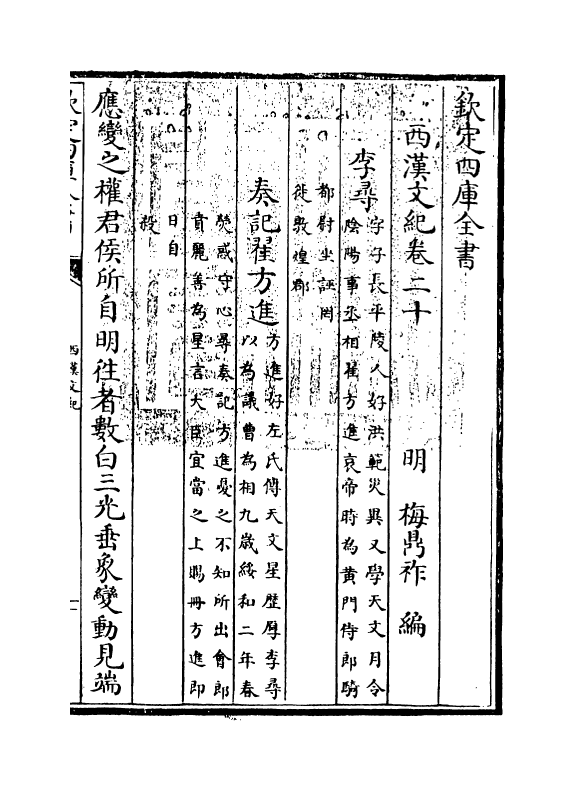 欽定四庫全書
西漢文紀卷二十
明 梅鼎祚 編
李尋
字子長平陵人好洪範災異又學天文月令
陰陽事丞相翟方進哀帝時為黄門侍郎騎
都尉坐誣罔
徙敦煌郡
奏記翟方進
方進好左氏傳天文星歴厚李尋
以為議曹為相九歲綏和二年春
熒惑守心尋奏記方進憂之不知所出會郎
賁麗善為星言大臣宜當之上賜冊方進即
日自
殺
應變之權君侯所自明往者數白三光垂象變動見端
欽定四庫全書
西漢文紀
一